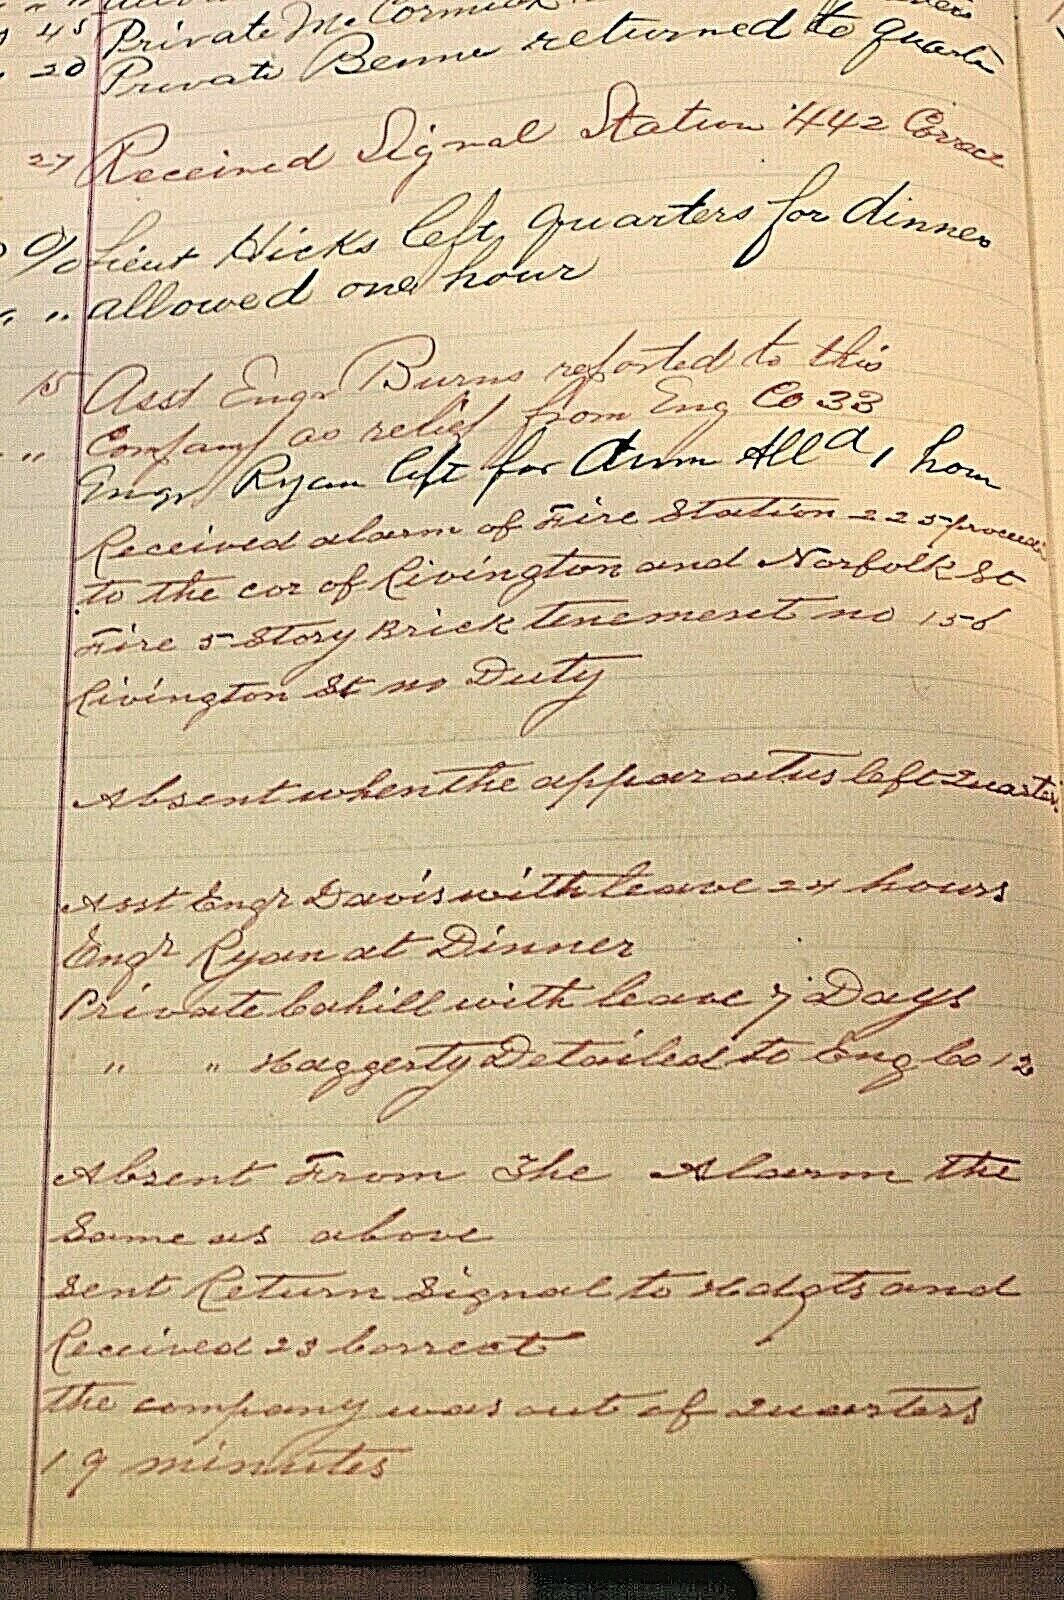 45 Private McCormick
20 Private Benne returned to quarts
27 Received Signal Station 442 Correct
Lieut Hicks left quarters for dinner
" " allowed one hour
15 Asst Engr Burns reported to this
" Company as relief from Eng Co 33
Engr Ryan left for dinn All d 1 hour
Received alarm of Fire Station 225 proceed
to the cor of Rivington and Norfolk St
Fire 5 Story Brick tenement no 156
Rivington St no Duty
Absent when the apparatus left Quarters
Asst Engr Davis with leave 24 hours
Engr Ryan at Dinner
Private Cahill with leave 7 Days
" " Haggerty Detailed to Eng Co 12
Absent From The Alarm the
Same as above
Sent Return Signal to Hdqts and
Received 23 Correct
the company was out of Quarters
19 minutes